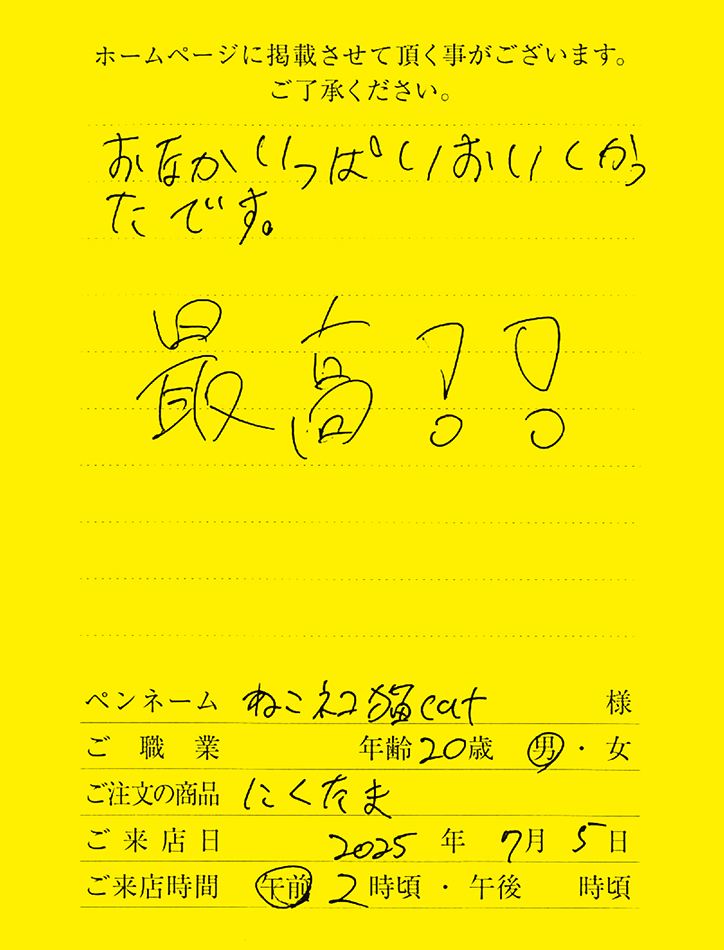 ホームページに掲載させて頂く事がございます。
ご了承ください。
おなかいっぱいおいしかっ
たです。
最高!!
ペンネーム ねこネコ猫cat 様
ご職業 年齢20歳 男・女
ご注文の商品 にくたま
ご来店日 2025年 7月 5日
ご来店時間 午前 2時頃・午後 時頃